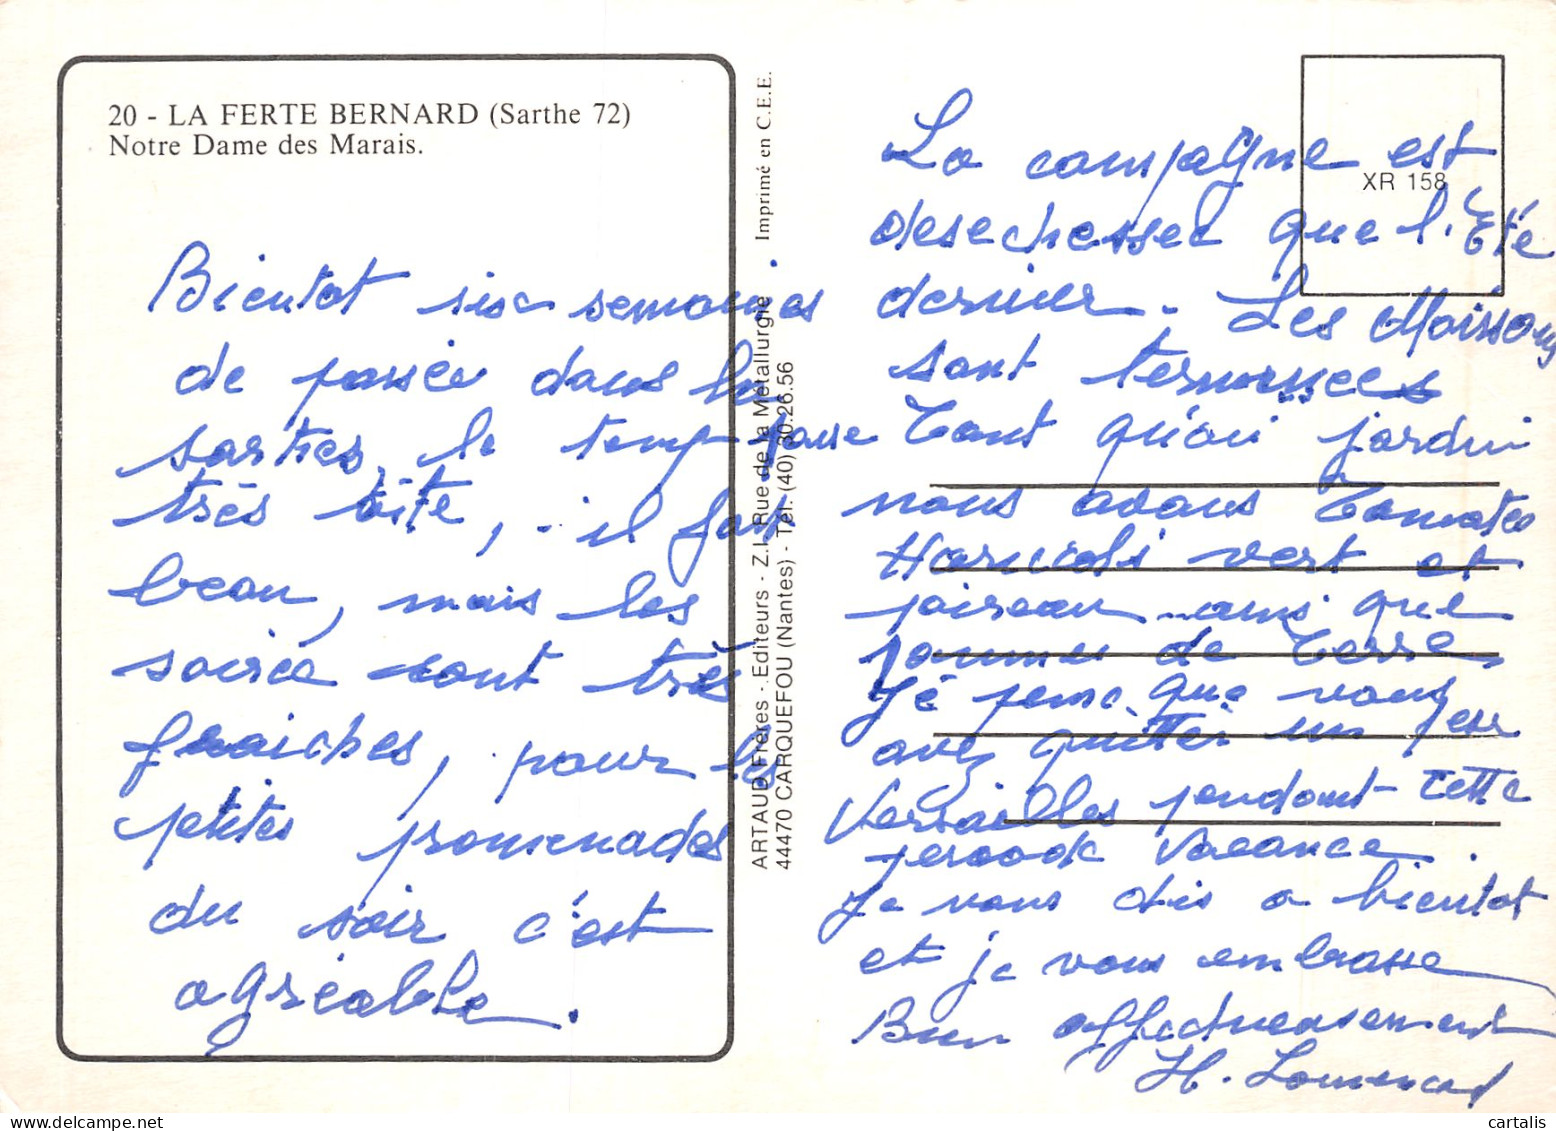 20 - LA FERTE BERNARD (Sarthe 72)
Notre Dame des Marais.
Bientot six semaines
de passée dans la
sarthes, le temp passe
très vite, il fait
beau, mais les
soirée sont très
fraiches, pour les
petites promenades
du soir c'est
agréable.
ARTAUD Frères - Editeurs - Z.I. Rue de la Métallurgie Imprimé en C.E.E.
44470 CARQUEFOU (Nantes) - Tél. (40) 30.26.56
XR 158
La campagne est
que l'Été
dernier. Les Moissons
sont
Tant qu'au jardin
nous avons Tomates
vert et
que
de Terre
Je pense que vous
avez quitter un peu
Versailles pendant cette
Vacance.
Je vous dis a bientot
et je vous embrasse
Bien affectueusement
H.
cartalis